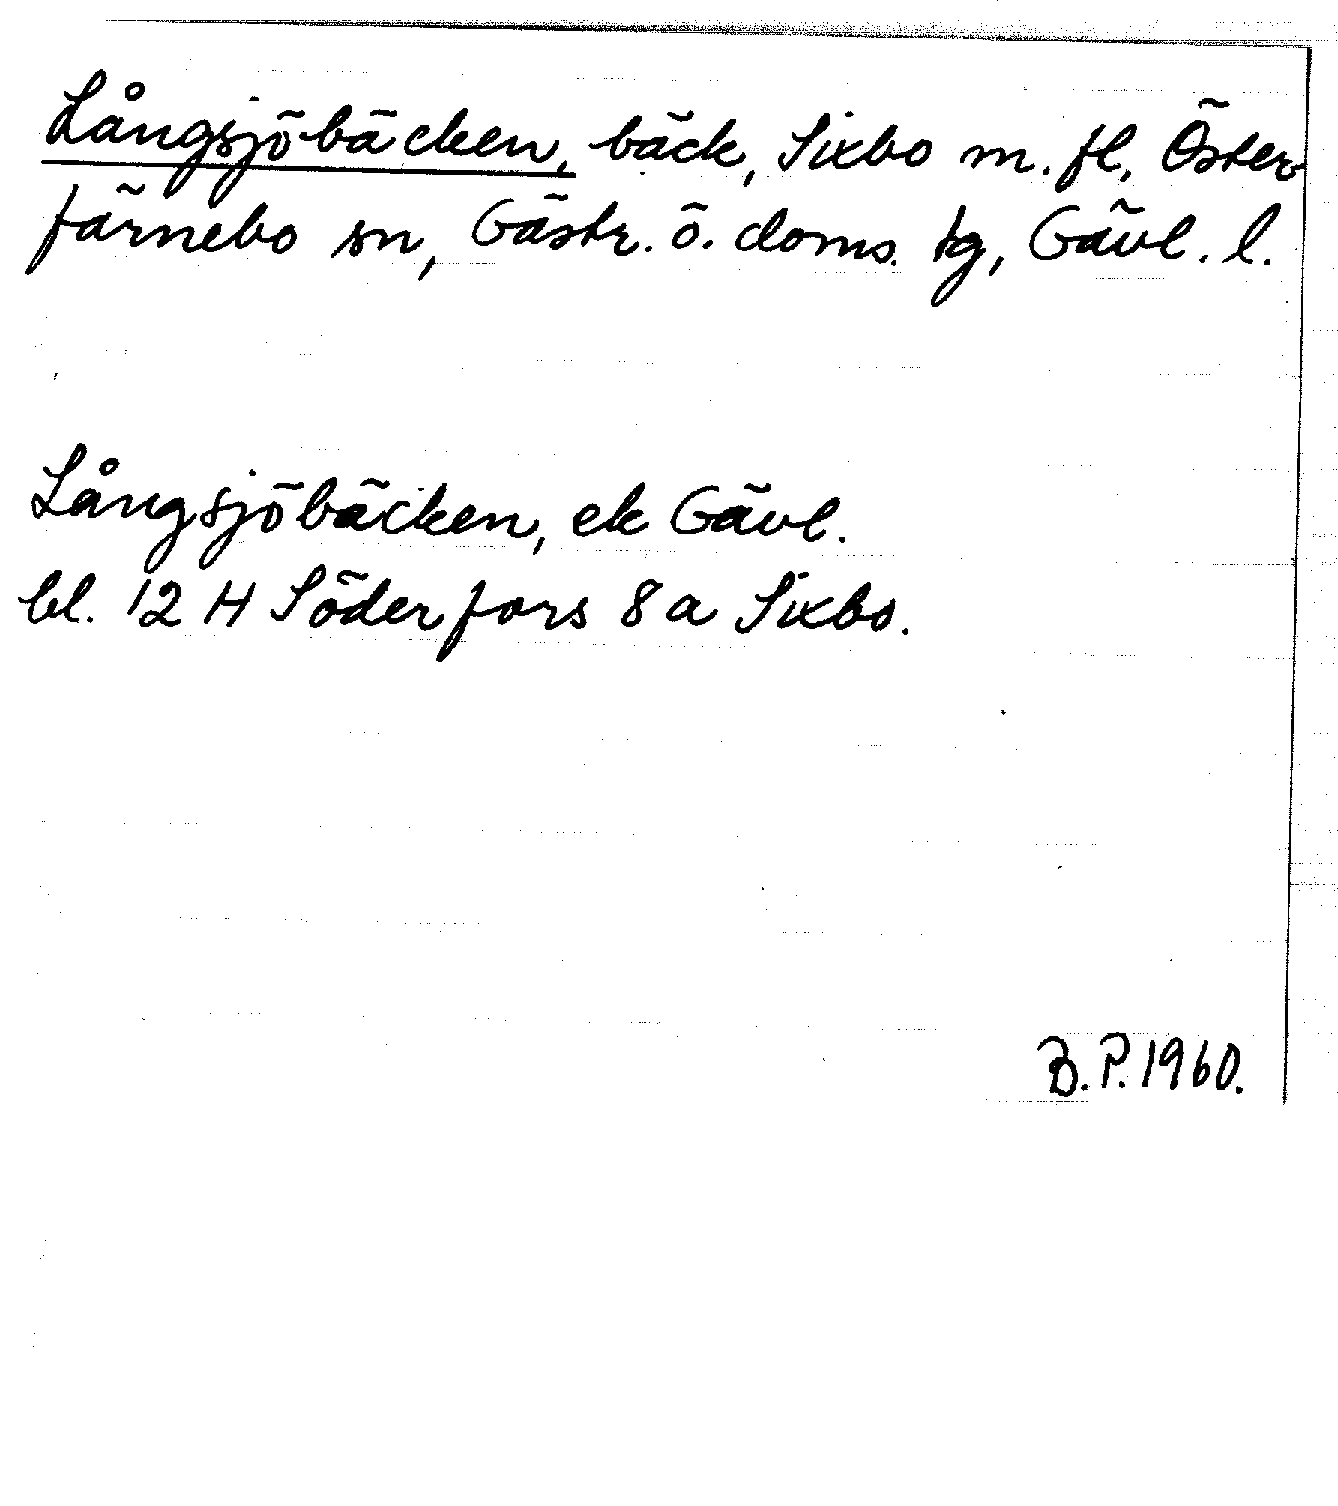 Långsjöbäcken, bäck, Sixbo m. fl. Öster-
färnebo sn, Gästr. ö. doms. tg, Gävl. l.
Långsjöbäcken, ek Gävl.
bl. 12 H Söderfors 8 a Sixbo.
B.P. 1960.